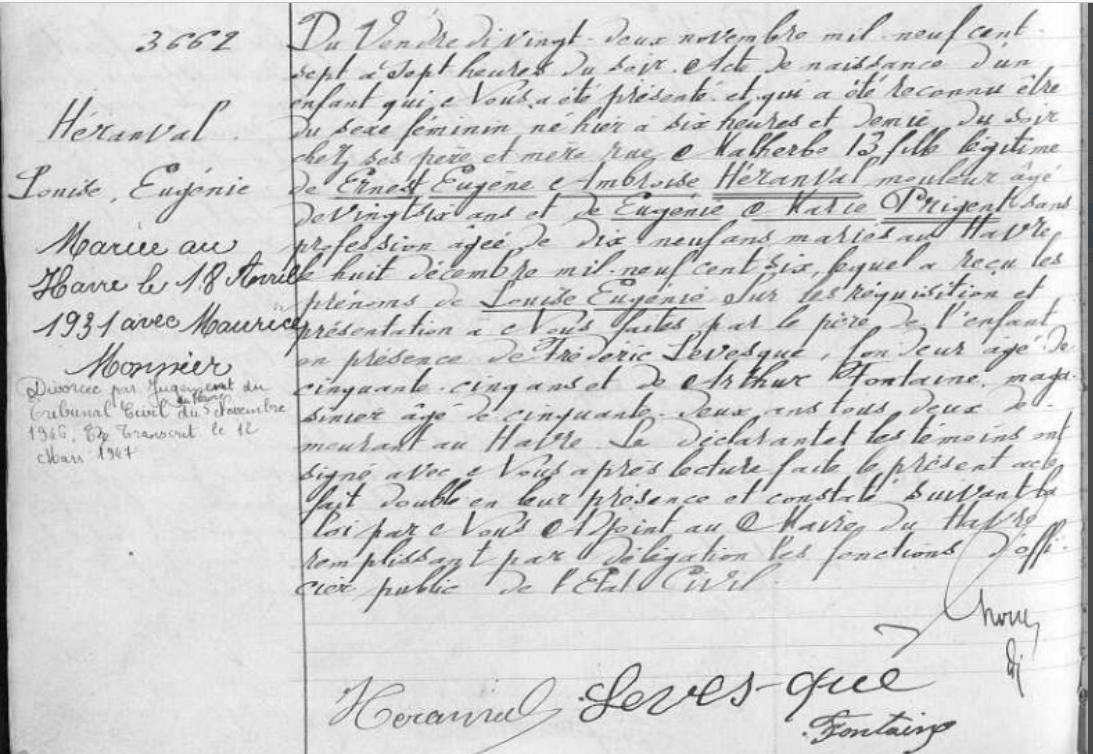 3662
Héranval
Louise, Eugénie
Mariée au
Havre le 18 Avril
1931 avec Maurice
Monnier
Divorcée par Jugement du
Tribunal Civil du Havre du 5 Novembre
1946, Transcrit le 12
Mars 1947
Du Vendredi vingt-deux novembre mil neuf cent
sept à sept heures du soir. Acte de naissance d'un
enfant qui, à Nous, a été présenté et qui a été reconnu être
du sexe féminin né hier à six heures et demie du soir
chez ses père et mère rue Malherbe 13 fille légitime
de Ernest Eugène Ambroise Héranval mouleur âgé
de vingt six ans et de Eugénie Marie Prigent sans
profession âgée de dix neuf ans mariés au Havre
le huit décembre mil-neuf cent six, lequel a reçu les
prénoms de Louise Eugénie Sur les réquisition et
présentation à Nous faites par le père de l'enfant
en présence de Frédéric Levesque, fondeur âgé de
cinquante-cinq ans et de Arthur Fontaine, maga-
sinier âgé de cinquante-deux ans tous deux de-
meurant au Havre. Le déclarant et les témoins ont
signé avec Nous après lecture faite le présent acte
fait double en leur présence et constaté suivant la
loi par Nous Adjoint au Maire du Havre
remplissant par délégation les fonctions d'offi-
cier public de l'Etat Civil.
Heranval Levesque
Fontaine